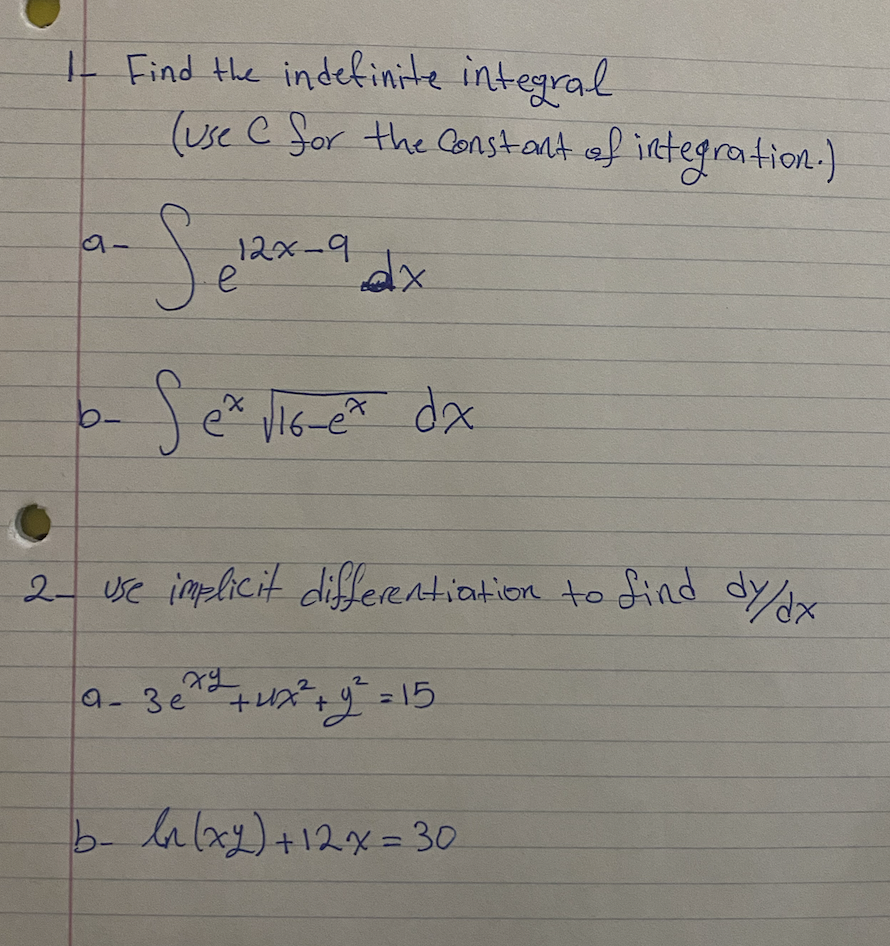 1- Find the indefinite integral
(use C for the constant of integration.)
a- ∫ e^{12x-9} dx
b- ∫ e^x √(16-e^x) dx
2- use implicit differentiation to find dy/dx
a- 3e^{xy} + 4x² + y² = 15
b- ln(xy) + 12x = 30